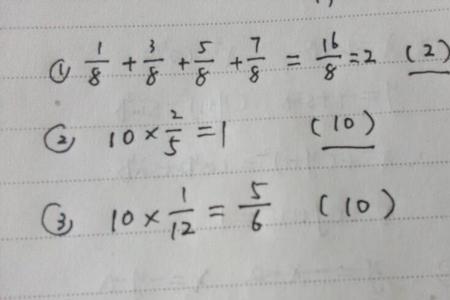 ① 1/8 + 3/8 + 5/8 + 7/8 = 16/8 = 2 (2)
② 10 × 2/5 = 1 (10)
③ 10 × 1/12 = 5/6 (10)